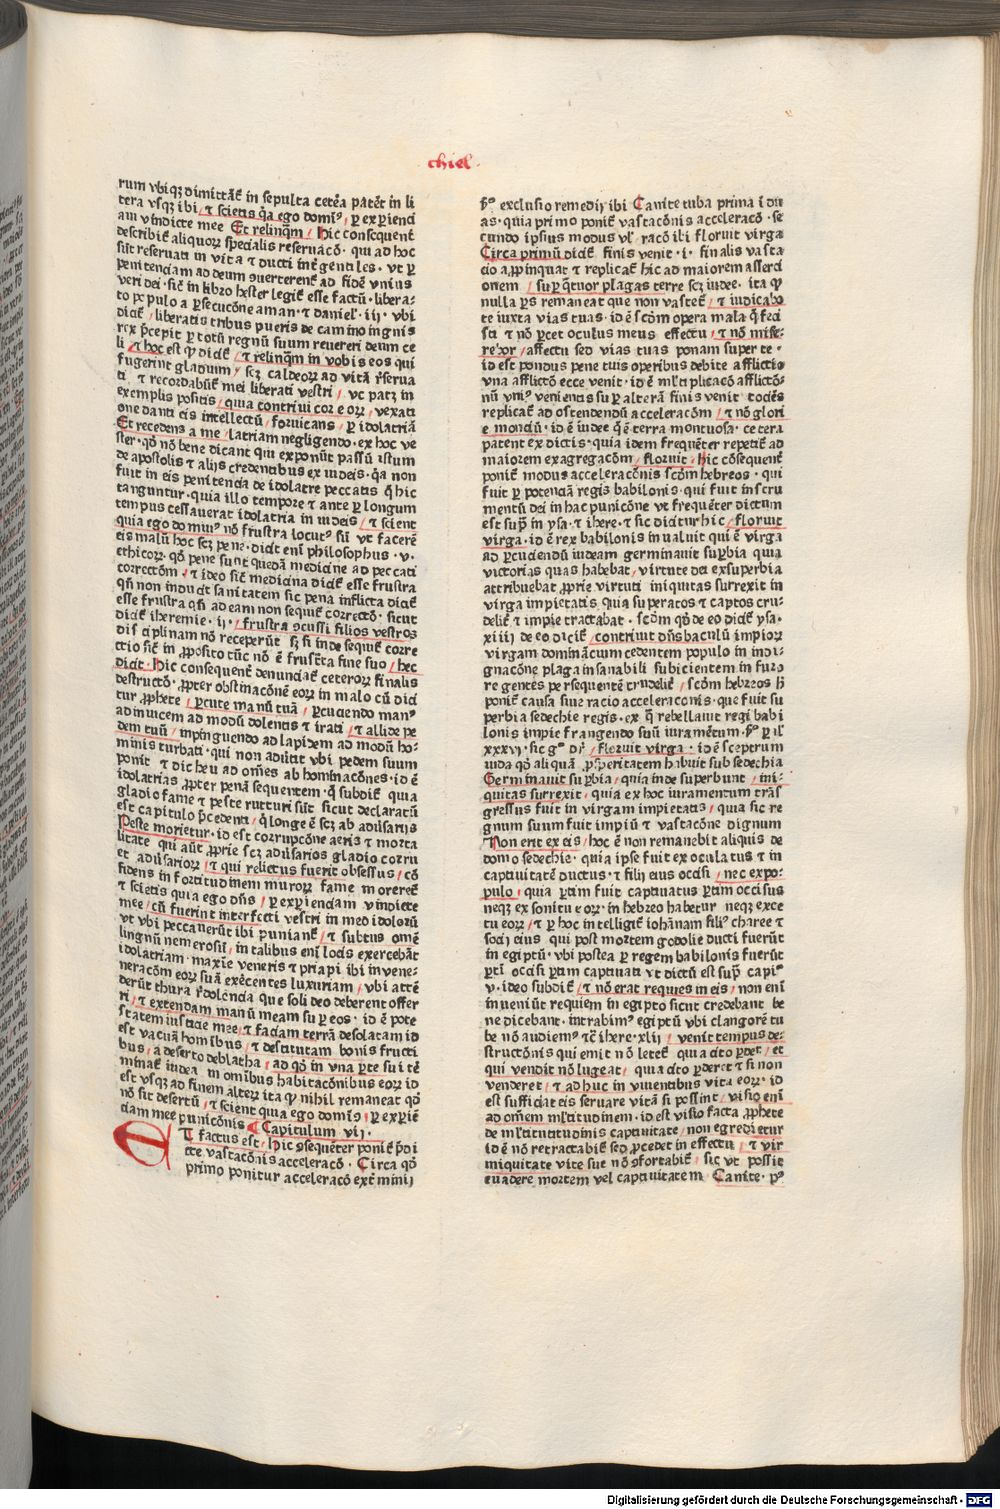 chiel·
rum vbiqꝫ dimittā̄t in sepulta cetēa patēt in li
tera vsqꝫ ibi / ⁊ scietis q̄a ego domi⁹ / ꝑ experienci
am vindicte mee Et relinqm̄ / hic consequent̄
describit̄ aliquoꝝ specialis reseruacō · qui ad hoc
sūt reseruati in vita ⁊ ducti int̄ gentiles · vt ꝑ
penitenciam ad deum ꝯuerterent̄ ad fidē vnius
veri dei · sic̄ in libro hester legit̄ esse factū · libera-
to populo a ꝑsecucōne aman · ⁊ daniel̄ · iij · vbi
dicit̄ / liberatis tribus pueris de camino ignis
rex p̄cepit ꝑ totū regnū suum reuereri deum ce
li / ⁊ hoc est ꝙ dicit̄ / ⁊ relinqm̄ in vobis eos qui
fugerint gladium / scꝫ caldeoꝝ ad vitā r̄serua
ti ⁊ recordabūt̄ mei liberati vestri / vt patꝫ in
exemplis positis / quia contriui cor eoꝝ / vexati
one danti eis intellectū / fornicans / ꝑ idolatriā
Et recedens a me / latriam negligendo · ex hoc ve
ster · qd̄ nō bene dicant qui exponūt passū istum
de apostolis ⁊ alijs credentibus ex iudeis · q̄a non
fuit in eis penitencia de idolatre peccatis q̄ hic
tanguntur · quia illo tempore ⁊ ante ꝑ longum
tempus cessauerat idolatria in iudeis / ⁊ scient
quia ego domin⁹ nō frustra locut⁹ sū vt facerē
eis malū hoc scꝫ pene · dicit enī philosophus · v ·
ethicoꝝ · qd̄ pene sunt quedā medicine ad peccati
correctōm / ⁊ ideo sic̄ medicina dicit̄ esse frustra
qn̄ non inducit sanitatem sic pena inflicta dicit̄
esse frustra qn̄ ad eam non sequit̄ correctō · sicut
dicit̄ iheremie · ij · / frustra ꝑcussi filios vestros
disciplinam nō receperūt sꝫ si inde sequit̄ corre
ctio sic̄ in ꝓposito tūc nō ē frustra sine suo / hec
dicit · hic consequent̄ denunciat̄ ceteroꝝ finalis
destructō · ꝓpter obstinacōnē eoꝝ in malo cū dici
tur ꝓphete / ꝑcute manū tuā / ꝑcuciendo man⁹
adinuicem ad modū dolentis ⁊ irati / ⁊ allide pe
dem tuū / impinguendo ad lapidem ad modū ho-
minis turbati · qui non aduīt vbi pedem suum
ponit ⁊ dic heu ad om̄es abhominacōnes · id ē
idolatrias ꝓpter penā sequentem · q̄ subdit̄ quia
gladio fame ⁊ peste rutturi sūt sicut declaratū
est capitulo p̄cedenti / q̄ longe ē scꝫ ab adūsarijs
Peste morietur · id est corrupcōne aeris ⁊ morta
litate qui aūt prope scꝫ adūsarios gladio corru
et adūsarioꝝ / ⁊ qui relictus fuerit obsessus / cō
fidens in fortitudinem muroꝝ fame morerēt̄
⁊ scietis quia ego dn̄s / ꝑ experienciam vindicte
mee / cū fuerint interfecti vestri in medio idoloꝝ
vt vbi peccauerūt ibi puniant̄ / ⁊ subtus om̄e
lingnū nemerosū / in talibus enī locis exercebāt
idolatriam · maxīe veneris ⁊ priapi ibi in vene-
neracōm eoꝝ suā exercentes luxuriam / vbi attē
derūt thura r̄dolencia que soli deo deberent offer
ri / ⁊ extendam manū meam super eos · id ē pote
statem iusticie mee / ⁊ faciam terrā desolatam id
est vacuā hominibus / ⁊ destitutam bonis fructi
bus / a deserto deblatha / ad qd̄ in vna ꝑte sui tē
minat̄ iudea in omībus habitacōnibus eoꝝ id
est vsqꝫ ad finem alteꝝ ita ꝙ nihil remaneat qd̄
nō sit desertū / ⁊ scient quia ego domi⁹ / ꝑ experiē
ciam mee punicōnis Capitulum vij ·
ET factus est / hic ꝯsequēter ponit̄ p̄di
cte vastacōnis acceleracō · Circa qd̄
primo ponitur acceleracō extminij
s̄o exclusio remedij ibi Canite tuba prima ī du
as · quia primo ponit̄ vastacōnis acceleracō · se
cundo ipsius modus vel racō ibi floruit virga
Circa primū dicit̄ finis venit · i · finalis vasta
cio appinquat ⁊ replicat̄ hic ad maiorem asserci
onem / suꝑ q̄tuor plagas terre scꝫ iudee · ita ꝙ
nulla ꝑs remaneat que non vastet̄ / ⁊ iudicabo
te iuxta vias tuas · id ē scd̄m opera mala q̄ feci
sti ⁊ nō ꝑcet oculus meus effectu / ⁊ nō mise-
rebor / affectu sed vias tuas ponam super te ·
id est pondus pene tuis operibus debite afflictio
vna afflictō ecce venit · id ē ml̄tiplicacō afflictō-
nū vni⁹ venientis suꝑ alterā finis venit tociēs
replicat̄ ad ostendendū acceleracōm / ⁊ nō glori
e monciū · id ē iudee q̄ ē terra montuosa · cetera
patent ex dictis · quia idem frequēter repetit̄ ad
maiorem exagregacōm / floruit / hic cōsequent̄
ponit̄ modus acceleracōnis scd̄m hebreos · qui
fuit ꝑ potenciā regis babilonis · qui fuit instru
mentū dei in hac punicōne vt frequēter dictum
est sup̄ in ysa · ⁊ ihere · ⁊ sic dicitur hic / floruit
virga · id ē rex babilonis inualuit qui ē virga
ad ꝑcuciendū iudeam germinauit suꝑbia qua
victorias quas habebat / virtute dei ex superbia
attribuebat ꝓprie virtuti iniquitas surrexit in
virga impietatis quia superatos ⁊ captos cru-
delit̄ ⁊ impie tractabat · scd̄m qd̄ de eo dicit̄ ysa ·
xiiij de eo dicit̄ / contriuit dn̄s baculū impioꝝ
virgam dominācium cedentem populo in indi-
gnacōne plaga insanabili subicientem in furo
re gentes persequentē crudelit̄ / scd̄m hebreos h̄
ponit̄ causa siue racio acceleraconis · que fuit su
perbia sedechie regis · ex q̄ rebellauit regi babi
lonis impie frangendo suū iuramētum · s̄o ꝑ il̄
xxxvj · sic g° dr̄ / floruit virga · id ē sceptrum
iuda qd̄ aliquā ꝓsperitatem habuit sub sedechia
Germinauit suꝑbia / quia inde superbunt / ini-
quitas surrexit / quia ex hoc iuramentum trās
gressus fuit in virgam impietatis / quia sic re
gnum suum fuit impiū ⁊ vastacōne dignum
Non erit ex eis / hoc ē non remanebit aliquis de
domo sedechie · quia ipse fuit exoculatus ⁊ in
captiuitatē ductus · ⁊ filij eius occisi / nec expo-
pulo / quia ꝑtim fuit captiuatus ꝑtim occisus
neqꝫ ex sonitu eoꝝ · in hebreo habetur neqꝫ exce
tu eoꝝ / ⁊ ꝑ hoc intelligit̄ iohānam fili⁹ charee ⁊
socij eius qui post mortem godolie ducti fuerūt
in egiptū · vbi postea ꝑ regem babilonis fuerūt
ꝑtī occisi ꝑtam captiuati vt dictū est sup̄ capi°
v · ideo subdit̄ / ⁊ nō erat requies in eis / non enī
inueniūt requiem in egipto sicut credebant be
ne dicebant · intrabim⁹ egiptū vbi clangorē tu
be nō audiem⁹ ⁊c̄ ihere · xlij / venit tempus de-
structōnis qui emit nō letet̄ quia cito ꝑdet / et
qui vendit nō lugeat / quia cito ꝑderet ⁊ si non
venderet / ⁊ adhuc in viuentibus vita eoꝝ · id
est sufficiat eis seruare vitā si possint / visio enī
ad om̄em ml̄titudinem · id est visio facta ꝓphete
de ml̄titutudinis captiuitate / non egredietur
id ē nō retractabit̄ sed ꝓcedet in effectu / ⁊ vir
iniquitate vite sue nō ꝯfortabit̄ / sic vt possit
euadere mortem vel captiuitatem Canite · p°
Digitalisierung gefördert durch die Deutsche Forschungsgemeinschaft - DFG